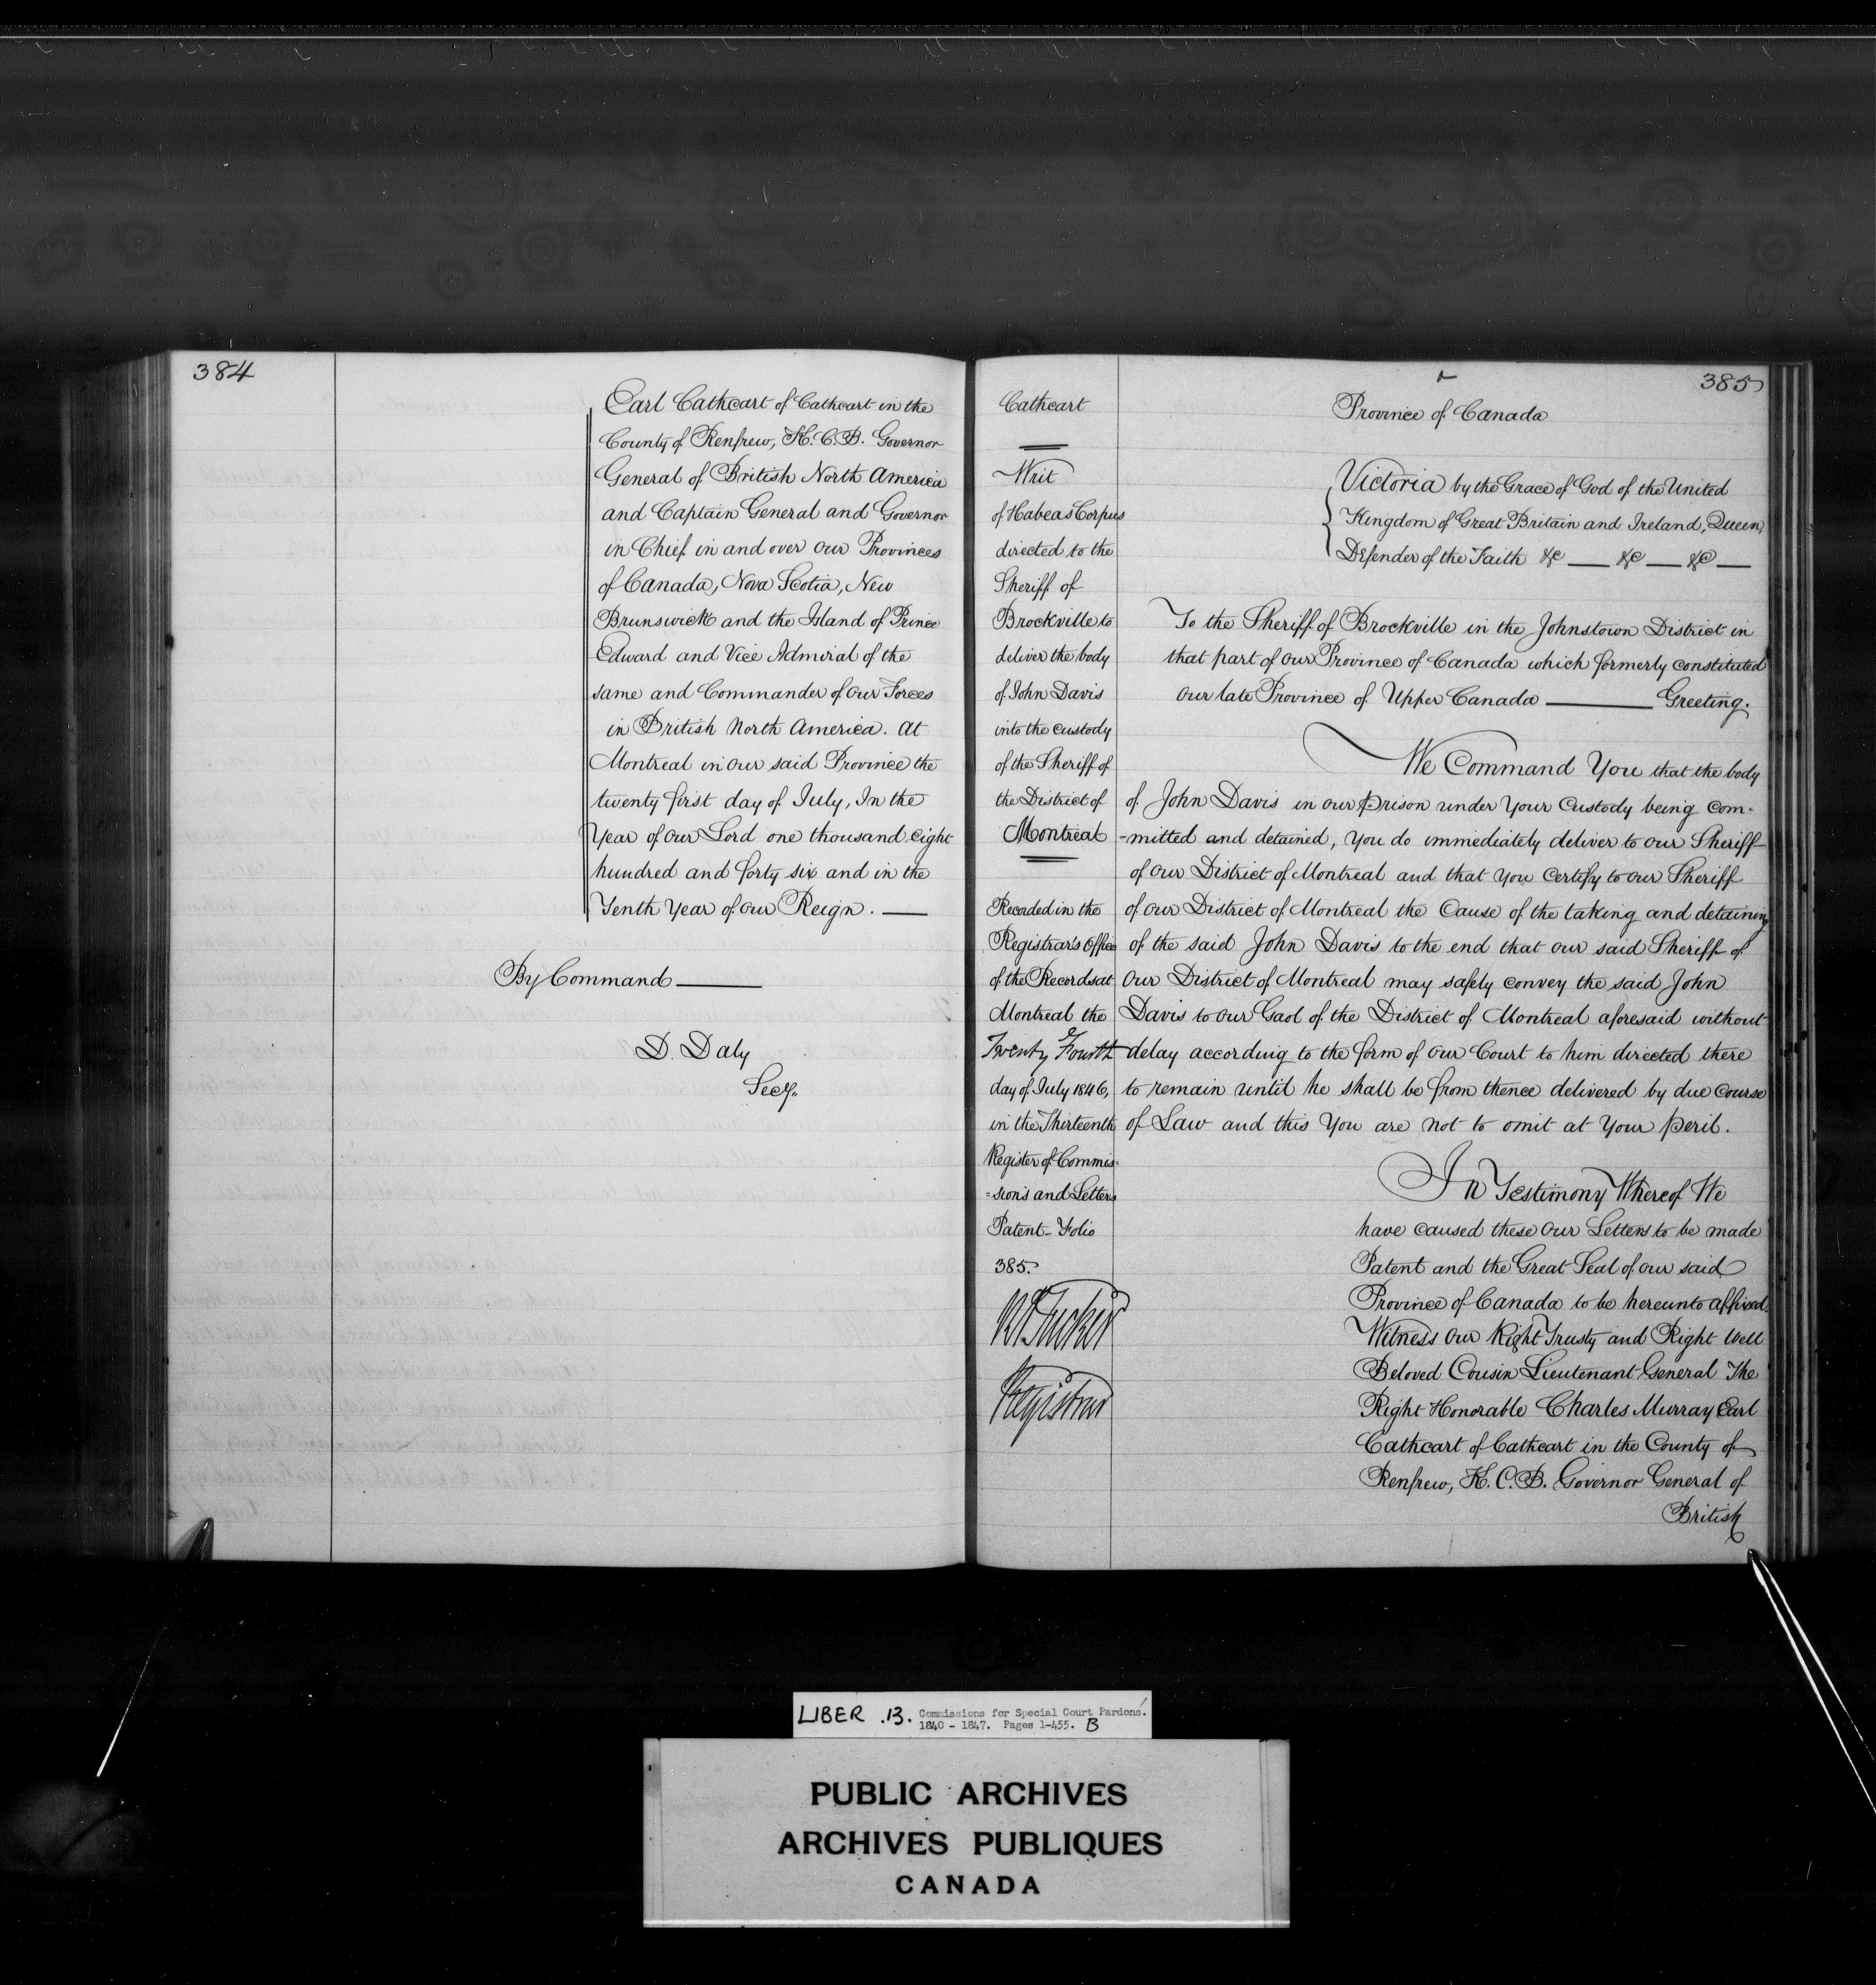 384
Earl Cathcart of Cathcart in the
County of Renfrew, K.C.B. Governor
General of British North America
and Captain General and Governor
in Chief in and over our Provinces
of Canada, Nova Scotia, New
Brunswick and the Island of Prince
Edward and Vice Admiral of the
same and Commander of our Forces
in British North America. At
Montreal in our said Province the
twenty first day of July, In the
Year of our Lord one thousand eight
hundred and forty six and in the
Tenth Year of our Reign. —
By Command —
D. Daly
Secy.
Cathcart
Writ
of Habeas Corpus
directed to the
Sheriff of
Brockville to
deliver the body
of John Davis
into the custody
of the Sheriff of
the District of
Montreal
Recorded in the
Registrar's Office
of the Records at
Montreal the
Twenty Fourth
day of July 1846,
in the Thirteenth
Register of Commis-
=sions and Letters
Patent - Folio
385.
R A Tucker
Registrar
385
Province of Canada
Victoria by the Grace of God of the United
Kingdom of Great Britain and Ireland, Queen,
Defender of the Faith &c — &c — &c —
To the Sheriff of Brockville in the Johnstown District in
that part of our Province of Canada which formerly constituted
our late Province of Upper Canada — Greeting.
We Command You that the body
of John Davis in our prison under Your Custody being com-
-mitted and detained, You do immediately deliver to our Sheriff
of our District of Montreal and that You Certify to our Sheriff
of our District of Montreal the Cause of the taking and detaining
of the said John Davis to the end that our said Sheriff of
our District of Montreal may safely convey the said John
Davis to our Gaol of the District of Montreal aforesaid without
delay according to the form of our Court to him directed there
to remain until he shall be from thence delivered by due course
of Law and this You are not to omit at Your peril.
In Testimony Whereof We
have caused these our Letters to be made
Patent and the Great Seal of our said
Province of Canada to be hereunto affixed.
Witness our Right Trusty and Right Well
Beloved Cousin Lieutenant General The
Right Honorable Charles Murray Earl
Cathcart of Cathcart in the County of
Renfrew, K.C.B. Governor General of
British
LIBER .13. Commissions for Special Court Pardons.
1840 - 1847. Pages 1-455. B
PUBLIC ARCHIVES
ARCHIVES PUBLIQUES
CANADA